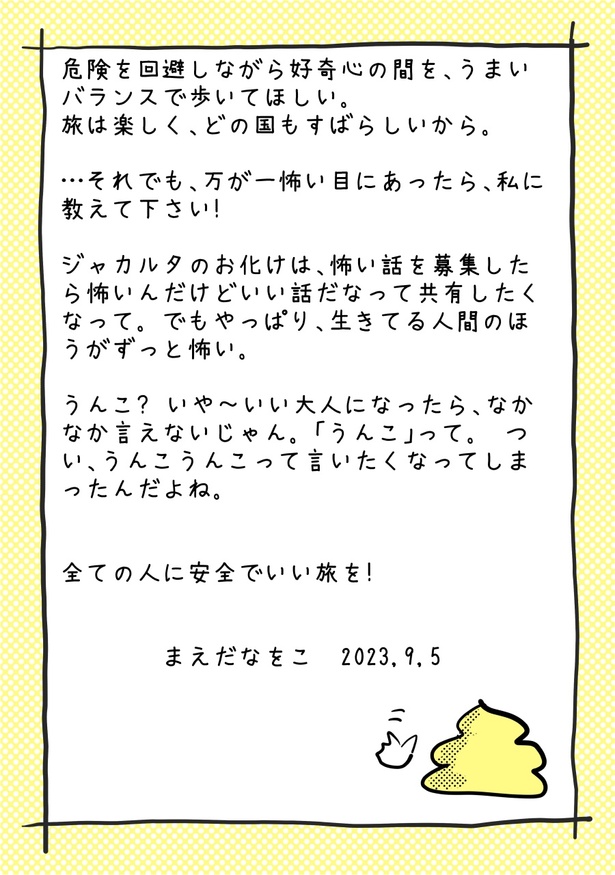 危険を回避しながら好奇心の間を、うまい
バランスで歩いてほしい。
旅は楽しく、どの国もすばらしいから。
…それでも、万が一怖い目にあったら、私に
教えて下さい!
ジャカルタのお化けは、怖い話を募集した
ら怖いんだけどいい話だなって共有したく
なって。でもやっぱり、生きてる人間のほ
うがずっと怖い。
うんこ? いや～いい大人になったら、なか
なか言えないじゃん。「うんこ」って。 つ
い、うんこうんこって言いたくなってしま
ったんだよね。
全ての人に安全でいい旅を!
まえだなをこ 2023,9,5